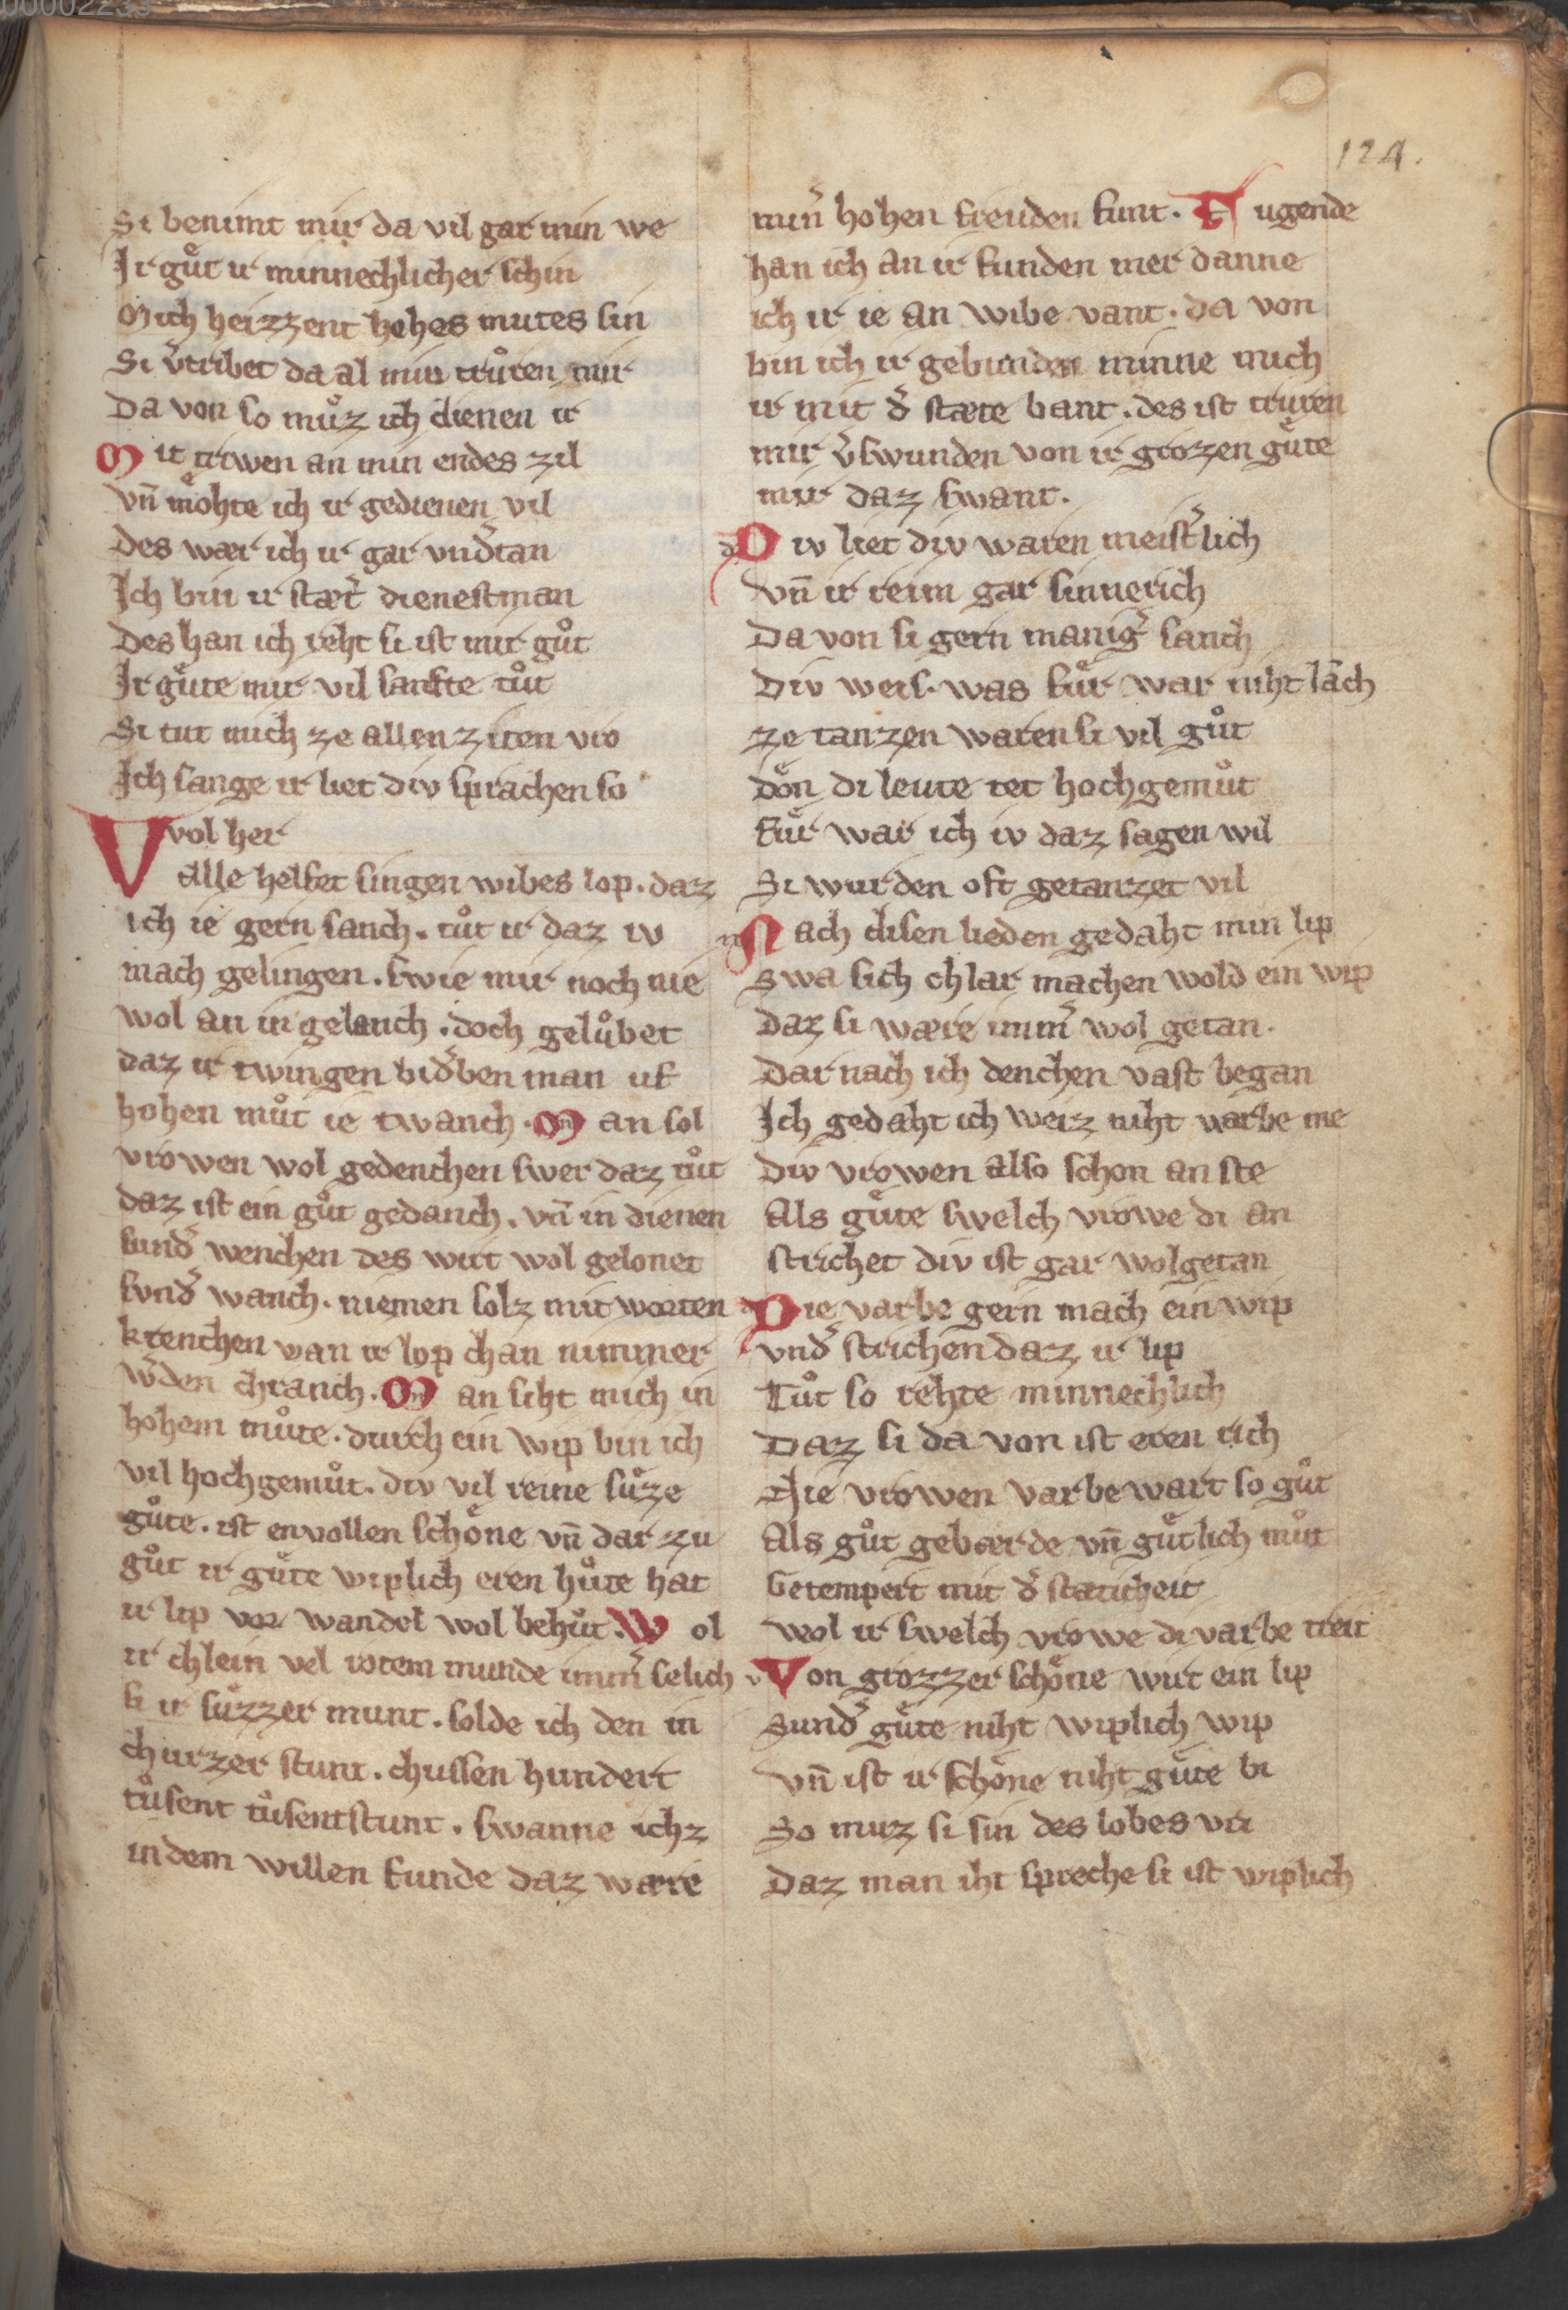 00002233
124.
Si benimt mir da vil gar min we
Ir guͦt ir minnechlicher schin
Mich heizzent hohes mutes sin
Si v̓tribet da al min truͦren mir
Da von so muͦz ich dienen ir
Mit triwen an min endes zil
Vn̄ moͤhte ich ir gedienen vil
Des wær ich ir gar vnd̓tan
Ich bin ir stæt̓ dienestman
Des han ich reht si ist mir guͦt
Ir guͤte mir vil sanfte tuͦt
Si tut mich ze allen ziten vro
Ich sange ir liet div sprachen so
Wol her
Alle helfet singen wibes lop. daz
ich ie gern sanch. tuͦt ir daz iv
mach gelingen. swie mir noch nie
wol an in gelanch. doch geluͦbet
daz ir twingen bid̓ben man uf
hohen muͦt ie twanch. Man sol
vrowen wol gedenchen swer daz tuͦt
daz ist ein guͦt gedanch. vn̄ in dienen
sund̓ wenchen des wirt wol gelonet
svnd̓ wanch. niemen solz mit worten
krenchen wan ir lop chan nimmer
w̓den chranch. Man siht mich in
hohem muͦte. durch ein wip bin ich
vil hochgemuͦt. div vil reine suͤze
guͦte. ist envollen schoͤne vn̄ dar zu
guͦt ir guͤte wiplich eren huͦte hat
ir lip vor wandel wol behuͦt. Wol
ir chlein vel rotem munde imm̓ selich
si ir suͤzzer munt. solde ich den in
churzer stunt. chussen hundert
tuͦsent tuͦsentstunt. swanne ichz
in dem willen funde daz wære
min̓ hohen freuden funt. Tugende
han ich an ir funden mer danne
ich ir ie an wibe vant. da von
bin ich ir gebunden minne mich
ir mit d̓ stæte bant. des ist truren
mir v̓swunden von ir grozen guͤte
mir daz swant.
Div liet div waren meist̓lich
Vn̄ ir reim gar sinnerich
Da von si gern manig̓ sanch
Div weis. was fuͤr war niht lāch
ze tanzen waren si vil guͦt
doͤn di leute tet hochgemuͦt
fuͤr war ich iv daz sagen wil
Si wurden oft getanzet vil
Nach disen lieden gedaht min lip
Swa sich chlar machen wold ein wip
Daz si wære imm̓ wol getan.
Dar nach ich denchen vast began
Ich gedaht ich weiz niht varbe me
Div vrowen also schon an ste
Als guͤte swelch vrowe di an
strichet div ist gar wolgetan
Die varbe gern mach ein wip
vnd̓ strichen daz ir lip
Tuͦt so rehte minnechlich
Daz si da von ist eren rich
Nie vrowen varbe wart so guͦt
Als guͦt gebærde vn̄ guͤtlich muͦt
Getempert mit d̓ stæticheit
Wol ir swelch vrowe di varbe treit
Von grozzer schoͤne wirt ein lip
Sund̓ guͤte niht wiplich wip
Vn̄ ist ir schoͤne niht guͤte bi
So muz si sin des lobes vri
Daz man iht spreche si ist wiplich